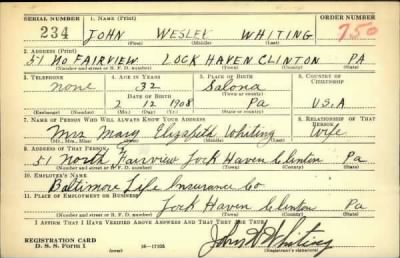 SERIAL NUMBER 1. NAME (Print) ORDER NUMBER
234 JOHN WESLEY WHITING 750
(First) (Middle) (Last)
2. ADDRESS (Print)
51 NO FAIRVIEW. LOCK HAVEN CLINTON PA
(Number and street or R. F. D. number) (Town) (County) (State)
3. TELEPHONE 4. AGE IN YEARS 5. PLACE OF BIRTH 6. COUNTRY OF CITIZENSHIP
none 32 Salona
DATE OF BIRTH (Town or county)
2 12 1908 Pa U.S.A
(Exchange) (Number) (Mo.) (Day) (Yr.) (State or country)
7. NAME OF PERSON WHO WILL ALWAYS KNOW YOUR ADDRESS 8. RELATIONSHIP OF THAT PERSON
Mrs Mary Elizabeth Whiting Wife
(Mr., Mrs., Miss) (First) (Middle) (Last)
9. ADDRESS OF THAT PERSON
51 North Fairview Lock Haven Clinton Pa
(Number and street or R. F. D. number) (Town) (County) (State)
10. EMPLOYER'S NAME
Baltimore Life Insurance Co
11. PLACE OF EMPLOYMENT OR BUSINESS
Lock Haven Clinton Pa
(Number and street or R. F. D. number) (Town) (County) (State)
I AFFIRM THAT I HAVE VERIFIED ABOVE ANSWERS AND THAT THEY ARE TRUE.
REGISTRATION CARD
D. S. S. Form 1 (over) 16—17105 John W Whiting